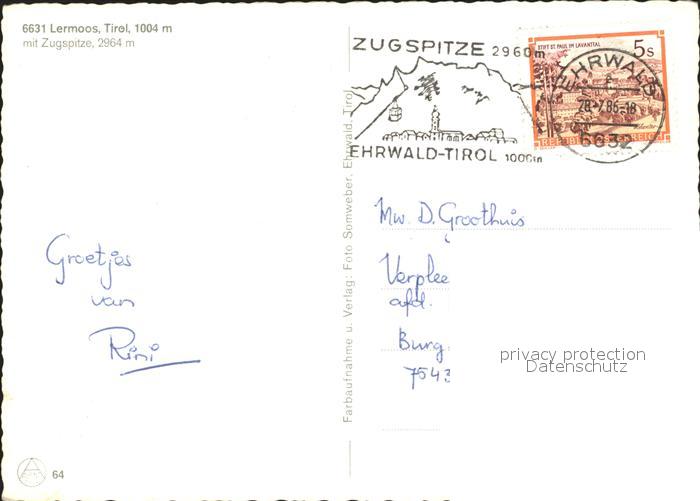 6631 Lermoos, Tirol, 1004 m
mit Zugspitze, 2964 m
ZUGSPITZE 2960m
EHRWALD-TIROL 1000m
STIFT ST. PAUL IM LAVANTTAL
5s
REPUBLIK ÖSTERREICH
EHRWALD
28.-7.86-18
6632
Farbaufnahme u. Verlag: Foto Somweber, Ehrwald, Tirol
Groetjes
van
Rini
Mw. D. Groothuis
Verplee
afd.
Burg.
7543
privacy protection
Datenschutz
64